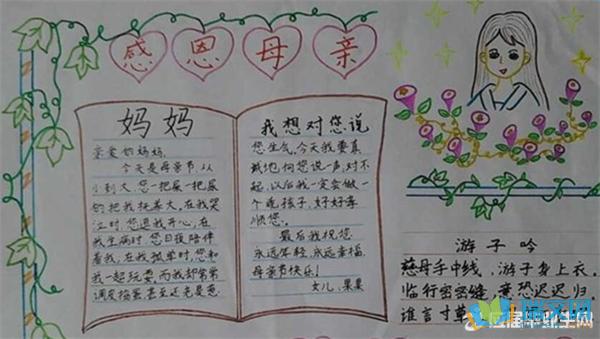 感恩母亲
妈妈
亲爱的妈妈:
今天是母亲节,从
小到大,您一把屎一把尿
的把我抚养大,在我哭
泣时,您逗我开心,在
我生病时,您日夜陪伴
着我,在我孤单时,您和
我一起玩耍,而我却常常
调皮捣蛋,甚至还老是惹
我想对您说
您生气,今天我要真
诚地向您说一声,对不
起,以后我一定会做一
个乖孩子,好好孝
顺您。
最后我祝您:
永远年轻,永远幸福,
母亲节快乐!
女儿:果果
游子吟
慈母手中线,游子身上衣。
临行密密缝,意恐迟迟归。
谁言寸草
应届毕业生网